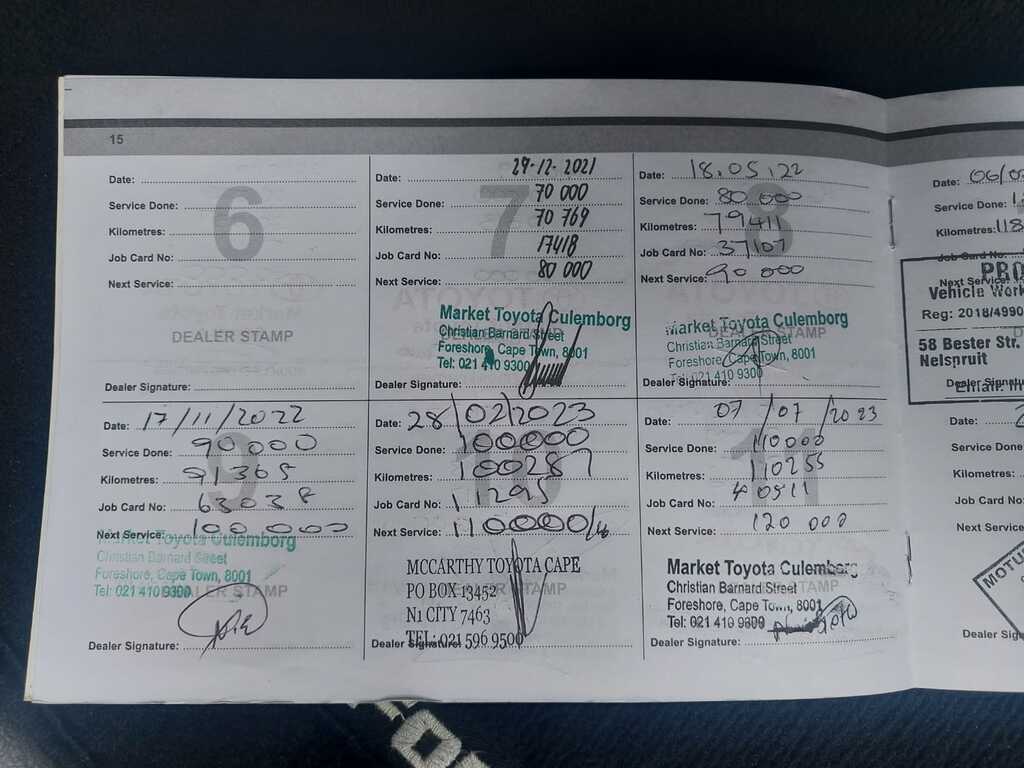 15
Date:
Service Done:
Kilometres:
Job Card No:
Next Service:
6
DEALER STAMP
Dealer Signature:
Date: 29-12-2021
Service Done: 70 000
Kilometres: 70 769
Job Card No: 17418
Next Service: 80 000
7
Market Toyota Culemborg
Christian Barnard Street
Foreshore, Cape Town, 8001
Tel: 021 410 9300
DEALER STAMP
Dealer Signature:
Date: 18.05.22
Service Done: 80 000
Kilometres: 79411
Job Card No: 37107
Next Service: 90 000
8
Market Toyota Culemborg
DEALER STAMP
Christian Barnard Street
Foreshore, Cape Town, 8001
Tel: 021 410 9300
Dealer Signature:
Date: 17/11/2022
Service Done: 90000
Kilometres: 91365
Job Card No: 63038
Next Service: 100 000
9
Market Toyota Culemborg
Christian Barnard Street
Foreshore, Cape Town, 8001
Tel: 021 410 9300
DEALER STAMP
Dealer Signature:
Date: 28/02/2023
Service Done: 100000
Kilometres: 100287
Job Card No: 11295
Next Service: 110000
10
MCCARTHY TOYOTA CAPE
PO BOX 13452
DEALER STAMP
N1 CITY 7463
TEL: 021 596 9500
Dealer Signature:
Date: 07/07/2023
Service Done: 110000
Kilometres: 110255
Job Card No: 40511
Next Service: 120 000
11
Market Toyota Culemborg
Christian Barnard Street
DEALER STAMP
Foreshore, Cape Town, 8001
Tel: 021 410 9300
Dealer Signature:
Date: 06/0
Service Done: 1
Kilometres: 118
Job Card No:
Next Service:
PRO
Vehicle Work
Reg: 2018/4990
58 Bester Str.
Nelspruit
Email:
Dealer Signatu
Date: 2
Service Done:
Kilometres:
Job Card No:
Next Service:
MOTU
Dealer Sign